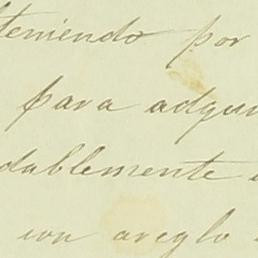 teniendo por
para adqui
dablemente
con areglo